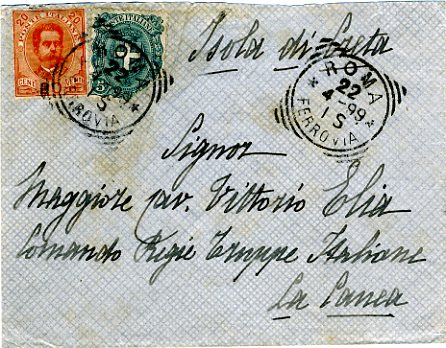 20 POSTE ITALIANE 20
CENT.
5
Isola di Creta
ROMA
22
4-99
1 S
FERROVIA
ROMA
22
4-99
1 S
FERROVIA
Signor
Maggiore cav. Vittorio Elia
Comando Regie Truppe Italiane
La Canea